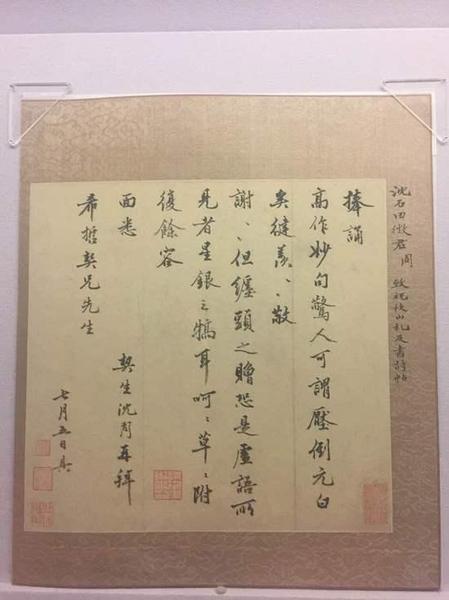 沈石田徵君周 致祝枝山札及書詩帖
捧誦
高作妙句驚人可謂壓倒元白
矣健羨〻敬
謝〻但纏頭之贈恐是虛語所
見者星銀之犒耳呵〻草〻附
復餘容
面悉 契生沈周再拜
希哲契兄先生
七月五日具